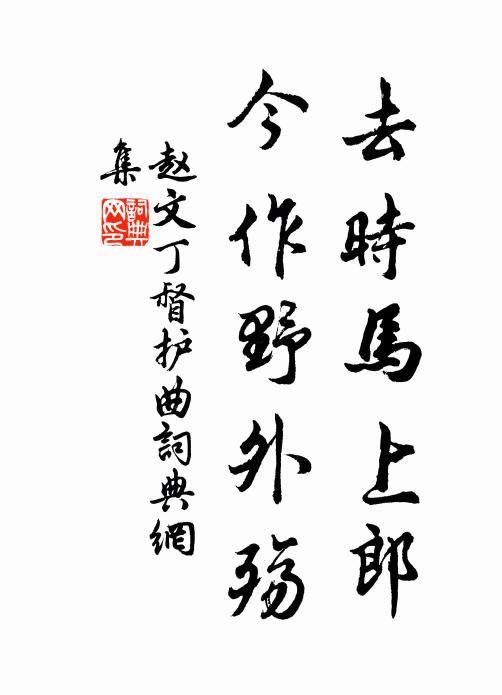 去時馬上郎
今作野外殤
赵文丁督护曲詞典網
集
詞典网印